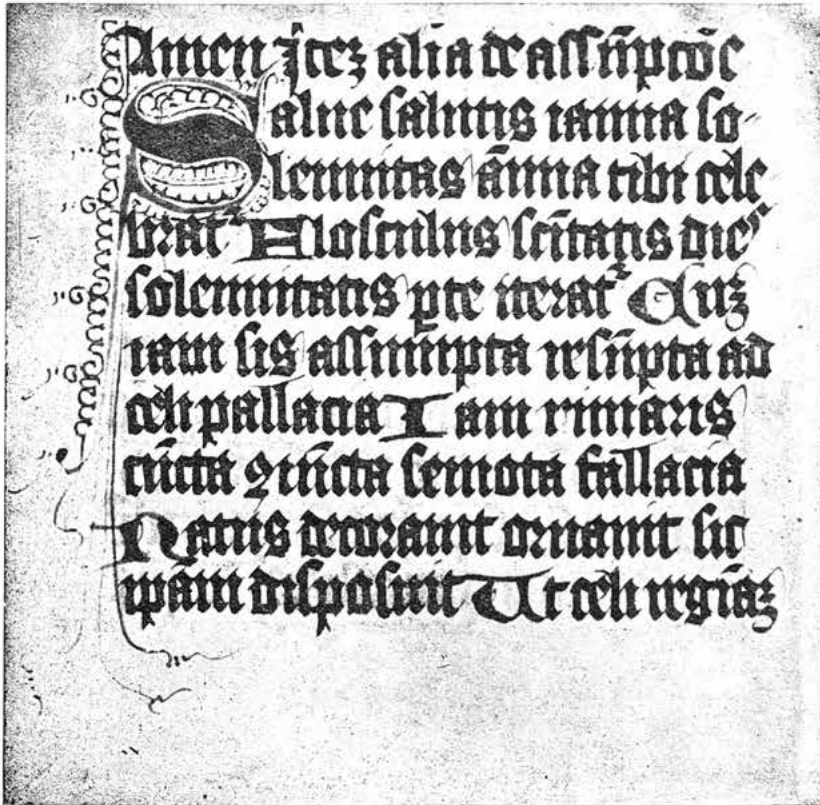 Amen Itez alia de assūpcōe
Salue salutis ianua so-
lemnitas āñua tibi cele
brat᷑ Flosculus scītatis dieˢ
solemnitatis ꝑte iterat᷑ Quȝ
iam sis assumpta resūpta ad
celi pallacia Iam rimaris
cūcta ꝯiūcta semota fallacia
Natus decorauit ornauit sic
ipām disposuit Ut celi regīaȝ